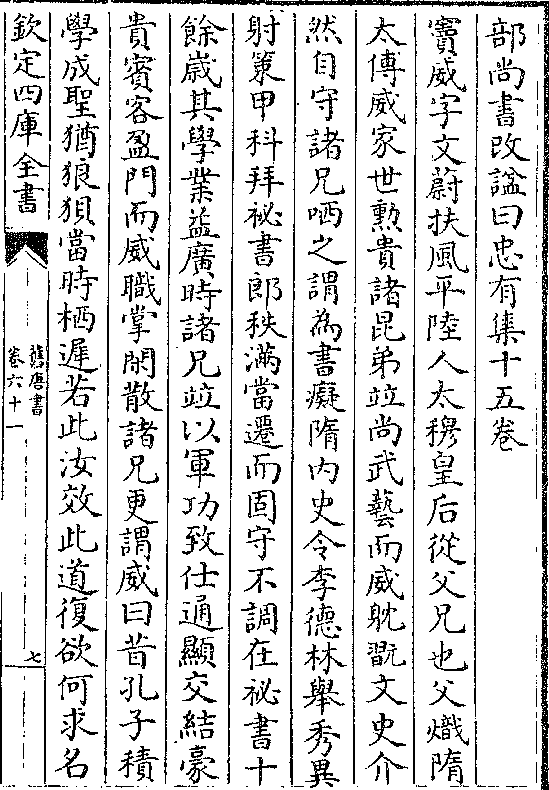 部尚書改諡曰忠有集十五卷
竇威字文蔚扶風平陸人太穆皇后從父兄也父熾隋
太傅威家世勲貴諸昆弟竝尚武藝而威躭翫文史介
然自守諸兄哂之謂為書癡隋内史令李德林舉秀異
射策甲科拜祕書郎秩滿當遷而固守不調在祕書十
餘歳其學業益廣時諸兄竝以軍功致仕通顯交結豪
貴賓客盈門而威職掌閑散諸兄更謂威曰昔孔子積
學成聖猶狼狽當時栖遲若此汝效此道復欲何求名
欽定四庫全書
舊唐書
卷六十一
七